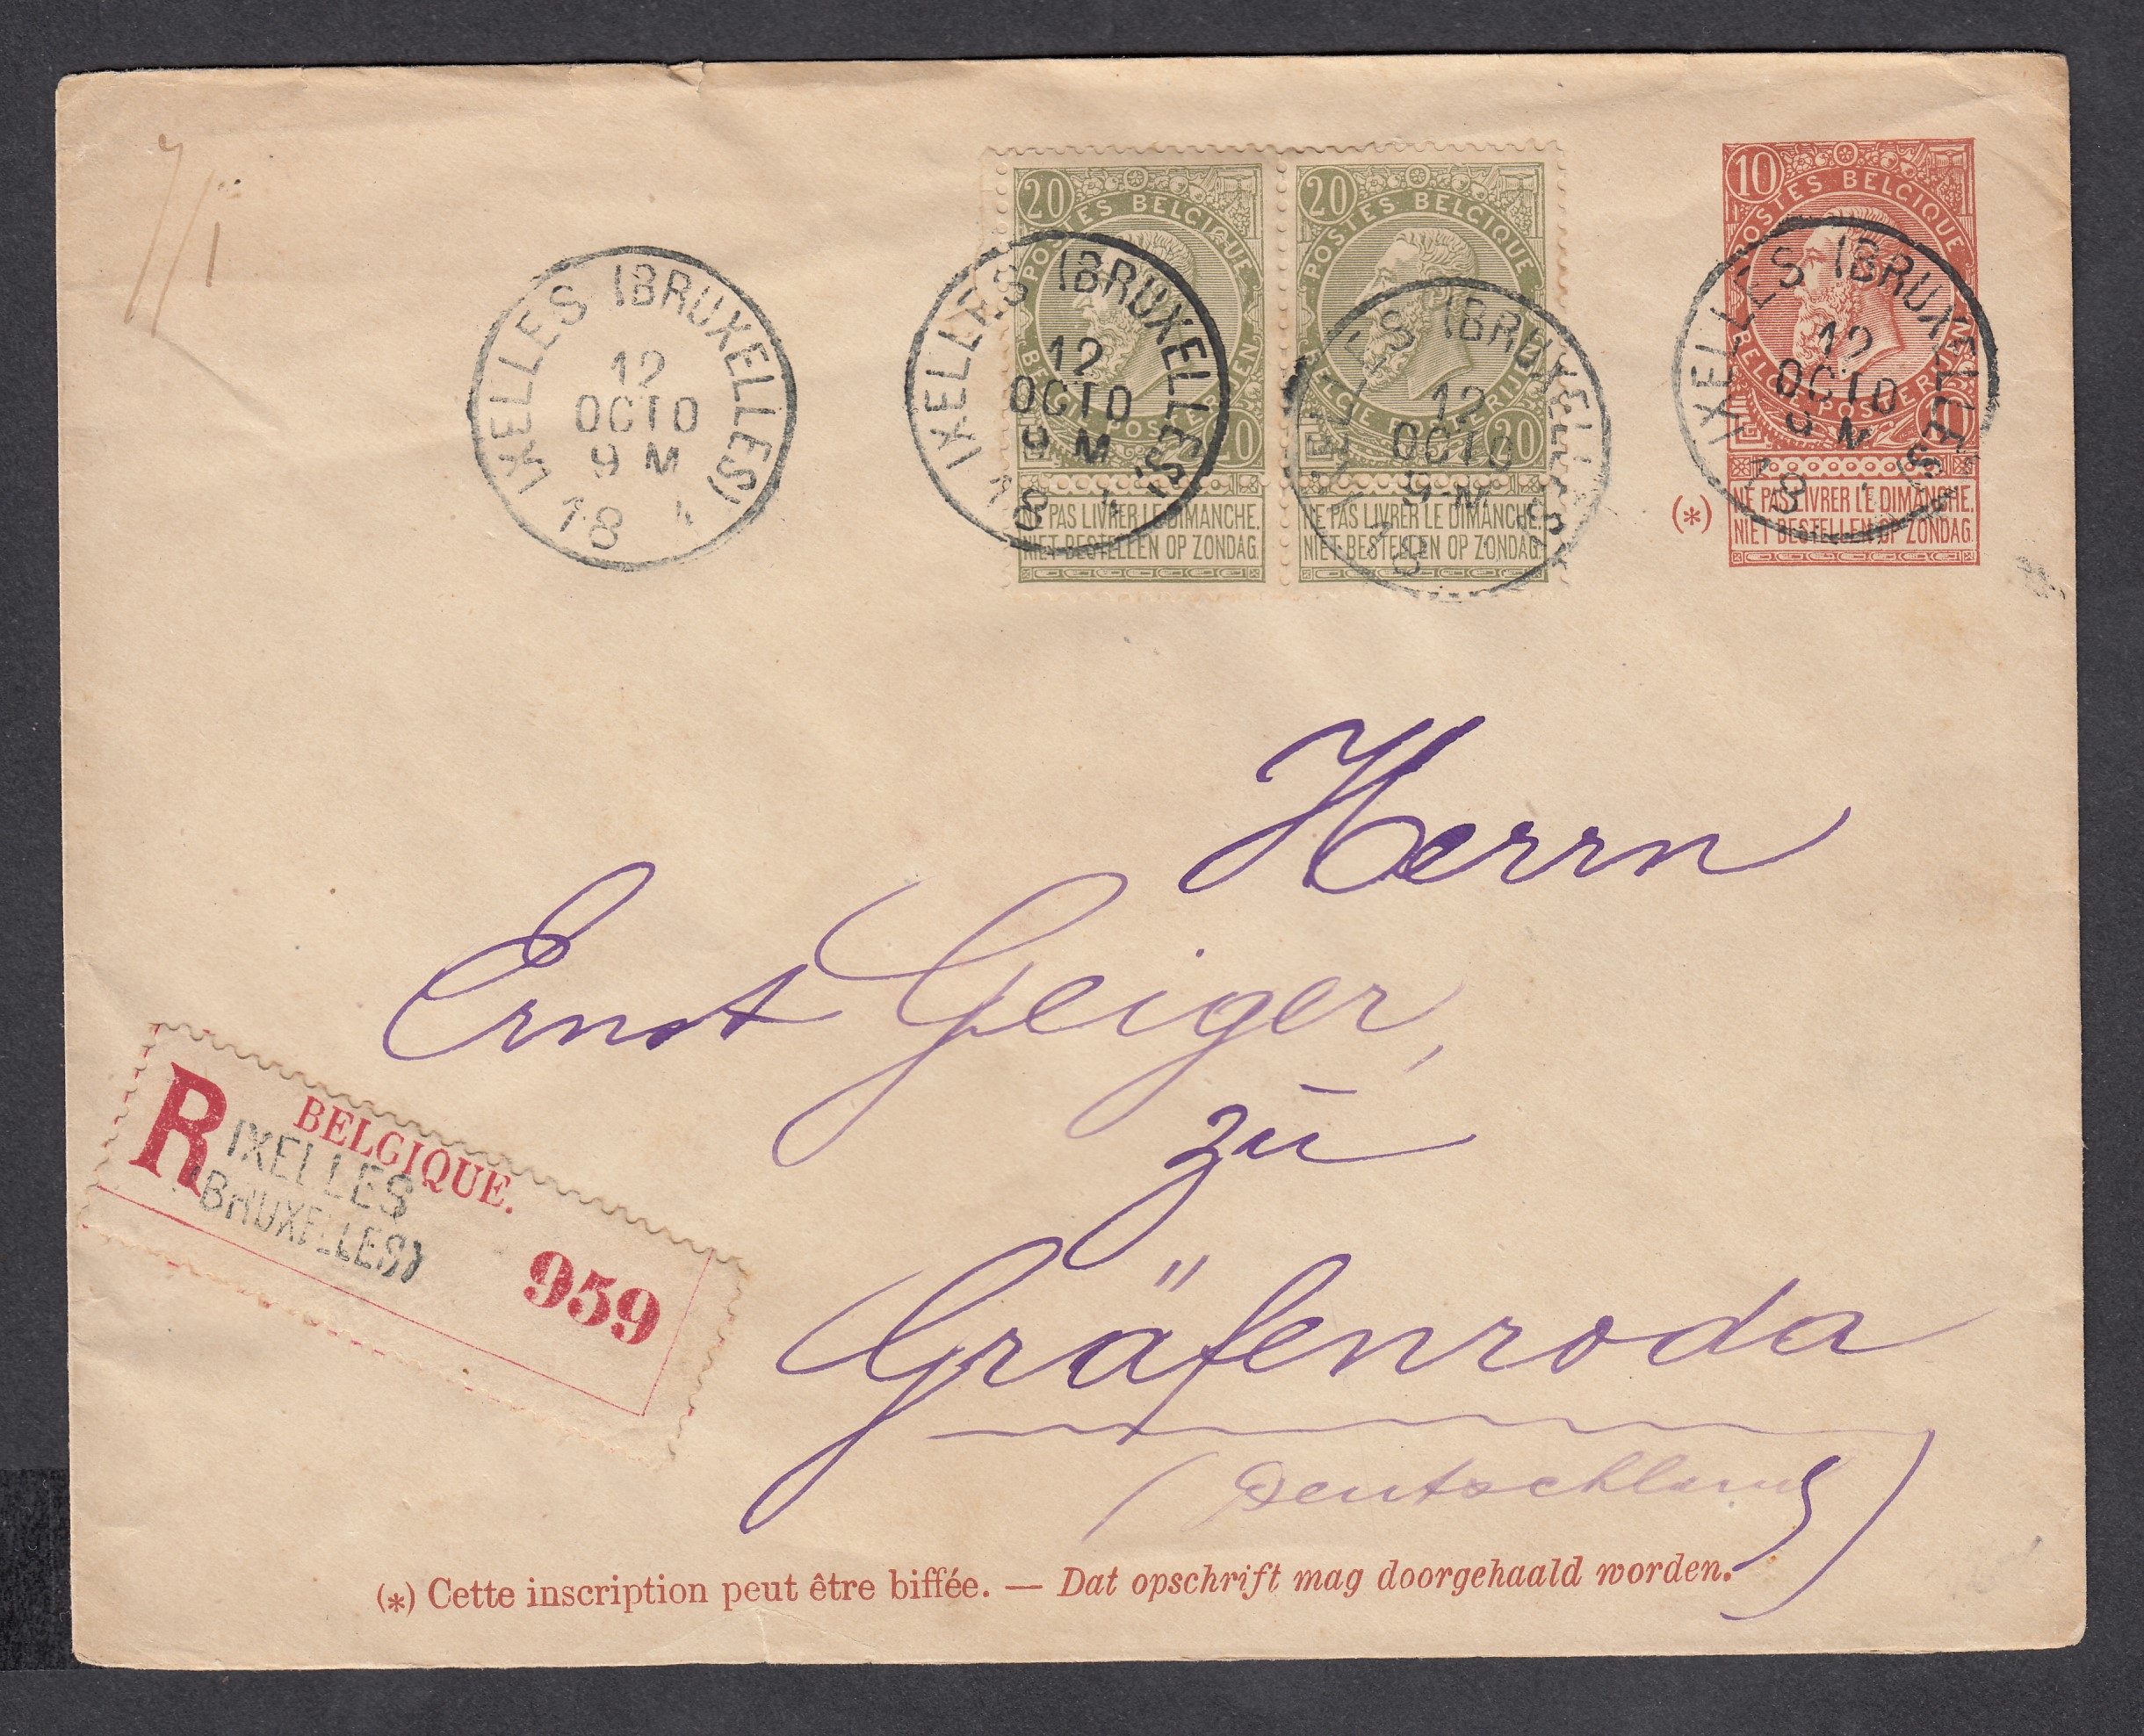 IXELLES (BRUXELLES)
12
OCTO
9 M
18
20
POSTES BELGIQUE
BELGIE POSTERIJEN
20
NE PAS LIVRER LE DIMANCHE.
NIET BESTELLEN OP ZONDAG
IXELLES (BRUXELLES)
12
OCTO
9 M
18
20
POSTES BELGIQUE
BELGIE POSTERIJEN
20
NE PAS LIVRER LE DIMANCHE.
NIET BESTELLEN OP ZONDAG
IXELLES (BRUXELLES)
12
OCTO
9 M
18
10
POSTES BELGIQUE
BELGIE POSTERIJEN
10
(*) NE PAS LIVRER LE DIMANCHE.
NIET BESTELLEN OP ZONDAG
IXELLES (BRUXELLES)
12
OCTO
9 M
18
Herrn
Ernst Geiger,
zu
Gräfenroda
(Deutschland)
R BELGIQUE.
IXELLES
(BRUXELLES)
959
(*) Cette inscription peut être biffée. — Dat opschrift mag doorgehaald worden.